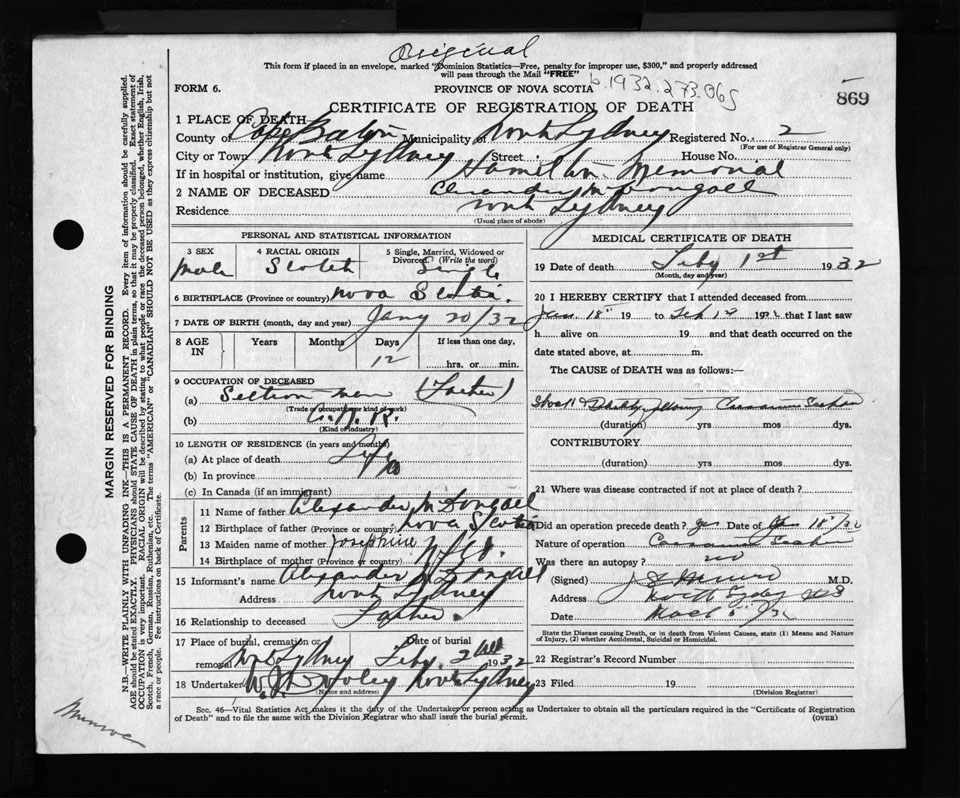 Original
This form if placed in an envelope, marked "Dominion Statistics—Free, penalty for improper use, $300," and properly addressed
will pass through the Mail "FREE"
b.1932.273.065
FORM 6. PROVINCE OF NOVA SCOTIA
869
CERTIFICATE OF REGISTRATION OF DEATH
1 PLACE OF DEATH
County of Cape Breton Municipality North Sydney Registered No. 2
(For use of Registrar General only)
City or Town North Sydney Street House No.
If in hospital or institution, give name Hamilton Memorial
2 NAME OF DECEASED Alexander McDougall
Residence North Sydney
(Usual place of abode)
PERSONAL AND STATISTICAL INFORMATION
3 SEX 4 RACIAL ORIGIN 5 Single, Married, Widowed or Divorced. (Write the word)
Male Scotch Single
6 BIRTHPLACE (Province or country) Nova Scotia.
7 DATE OF BIRTH (month, day and year) Jany 20/32
8 AGE IN Years Months Days If less than one day,
12 hrs. or min.
9 OCCUPATION OF DECEASED
(a) Section man (Father)
(Trade or occupation or kind of work)
(b) C.N.R.
(Kind of industry)
10 LENGTH OF RESIDENCE (in years and months)
(a) At place of death Life
(b) In province
(c) In Canada (if an immigrant)
Parents
11 Name of father Alexander McDougall
12 Birthplace of father (Province or country) Nova Scotia
13 Maiden name of mother Josephine
14 Birthplace of mother (Province or country) Nfld.
15 Informant's name Alexander McDougall
Address North Sydney
16 Relationship to deceased Father.
17 Place of burial, cremation or removal Date of burial
North Sydney Feby. 2nd 1932
18 Undertaker W. J. Dooley North Sydney
(Name and address)
MEDICAL CERTIFICATE OF DEATH
19 Date of death Feby 1st 1932
(Month, day and year)
20 I HEREBY CERTIFY that I attended deceased from
Jan. 18 19 to Feb 1st 1932 that I last saw
h alive on 19 and that death occurred on the
date stated above, at m.
The CAUSE of DEATH was as follows:—
Shock following Caesarian Section
(duration) yrs mos dys.
CONTRIBUTORY
(duration) yrs mos dys.
21 Where was disease contracted if not at place of death?
Did an operation precede death? yes Date of Jan 18/32
Nature of operation Caesarian Section
Was there an autopsy? no
(Signed) M.D.
Address North Sydney N S
Date
State the Disease causing Death, or in death from Violent Causes, state (1) Means and Nature
of Injury, (2) whether Accidental, Suicidal or Homicidal.
22 Registrar's Record Number
23 Filed 19
(Division Registrar)
Sec. 46—Vital Statistics Act makes it the duty of the Undertaker or person acting as Undertaker to obtain all the particulars required in the "Certificate of Registration
of Death" and to file the same with the Division Registrar who shall issue the burial permit. (OVER)
MARGIN RESERVED FOR BINDING
N.B.—WRITE PLAINLY WITH UNFADING INK—THIS IS A PERMANENT RECORD. Every item of information should be carefully supplied.
AGE should be stated EXACTLY. PHYSICIANS should STATE CAUSE OF DEATH in plain terms, so that it may be properly classified. Exact statement of
OCCUPATION is very important. RACIAL ORIGIN will be described by stating to what people or race the deceased person belonged, whether English, Irish,
Scotch, French, German, Russian, Ruthenian, etc. The terms "AMERICAN" or "CANADIAN" SHOULD NOT BE USED as they express citizenship but not
a race or people. See instructions on back of Certificate.
Munroe